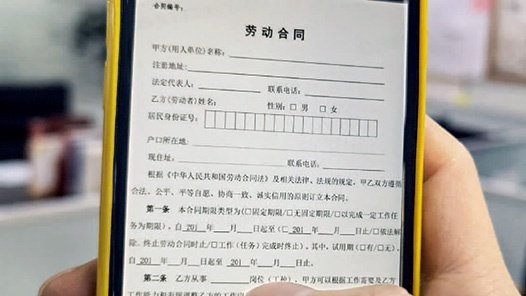 合同编号：
劳动合同
甲方(用人单位)名称：
注册地址：
法定代表人： 联系电话：
乙方(劳动者)姓名： 性别：□男 □女
居民身份证号：
户口所在地：
现住址： 联系电话：
根据《中华人民共和国劳动合同法》及相关法律、法规的规定，甲乙双方遵循
合法、公平、平等自愿、协商一致、诚实信用的原则订立本合同。
第一条 本合同期限类型为(□固定期限/□无固定期限/□以完成一定工作任
务为期限)。自 201 年 月 日起至(□ 201 年 月 日止/□依法解
除、终止劳动合同时止/□工作(任务)完成时终止)。其中，试用期(□有/□无)，
自 201 年 月 日起至 201 年 月 日止。
第二条 乙方从事 岗位(工种)，甲方可以根据工作需要及乙方